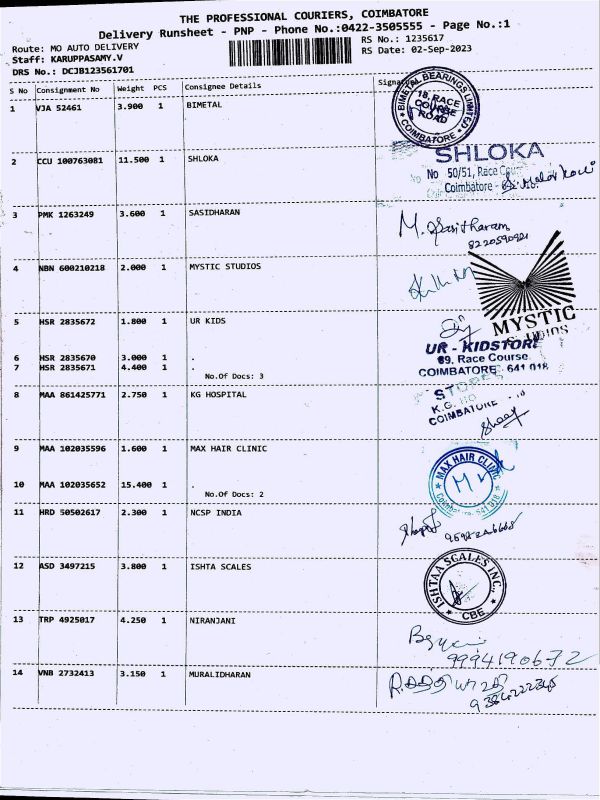 THE PROFESSIONAL COURIERS, COIMBATORE
Delivery Runsheet - PNP - Phone No.:0422-3505555 - Page No.:1
Route: MO AUTO DELIVERY
RS No.: 1235617
Staff: KARUPPASAMY.V
RS Date: 02-Sep-2023
DRS No.: DCJB123561701
S No Consignment No Weight PCS Consignee Details Signature
1 VJA 52461 3.900 1 BIMETAL
BIMETAL BEARINGS LIMITED
18, RACE
COURSE
ROAD
COIMBATORE
2 CCU 100763081 11.500 1 SHLOKA
SHLOKA
No 50/51, Race
Coimbatore -
3 PMK 1263249 3.600 1 SASIDHARAN
M. Sasitharam
8220590921
4 NBN 600210218 2.000 1 MYSTIC STUDIOS
MYSTIC
5 HSR 2835672 1.800 1 UR KIDS
UR - KIDSTORE
69, Race Course
COIMBATORE - 641 018
6 HSR 2835670 3.000 1 .
7 HSR 2835671 4.400 1 .
No.Of Docs: 3
8 MAA 861425771 2.750 1 KG HOSPITAL
STORES
K.G.
COIMBATORE
9 MAA 102035596 1.600 1 MAX HAIR CLINIC
MAX HAIR CLINIC
641 018
10 MAA 102035652 15.400 1 .
No.Of Docs: 2
11 HRD 50502617 2.300 1 NCSP INDIA
12 ASD 3497215 3.800 1 ISHTA SCALES
ISHTAA SCALES INC.
CBE
13 TRP 4925017 4.250 1 NIRANJANI
9994190672
14 VNB 2732413 3.150 1 MURALIDHARAN